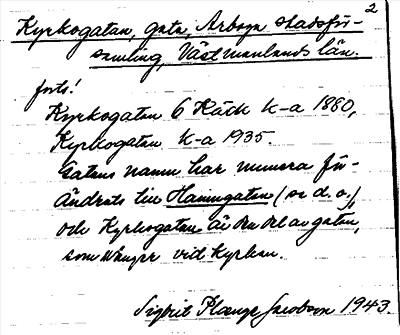 2
Kyrkogatan, gata, Arboga stadsför-
samling, Västmanlands län.
forts!
Kyrkogatan 6 K-a 1880,
Kyrkogatan K-a 1935.
Gatans namn har numera för-
ändrats till Hamngatan (se d. o.),
och Kyrkogatan är den del av gatan,
som vid Kyrkan.
Sigbrit Plænge Jacobson 1943.